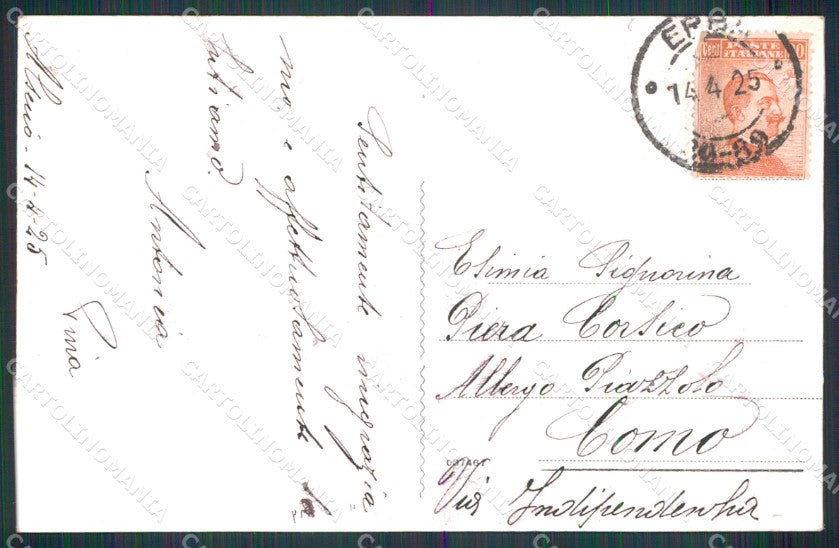 Alserio - 14-4-25
Sentitamente ringrazia
mo e affettuosamente la
salutiamo.
Antonia
Pina
ERBA
14.4.25
POSTE
ITALIANE
Cent
20
Esimia Signorina
Piera Corsico
Albergo Piazzolo
Como
Via Indipendenza
007467
CARTOLINOMANIA